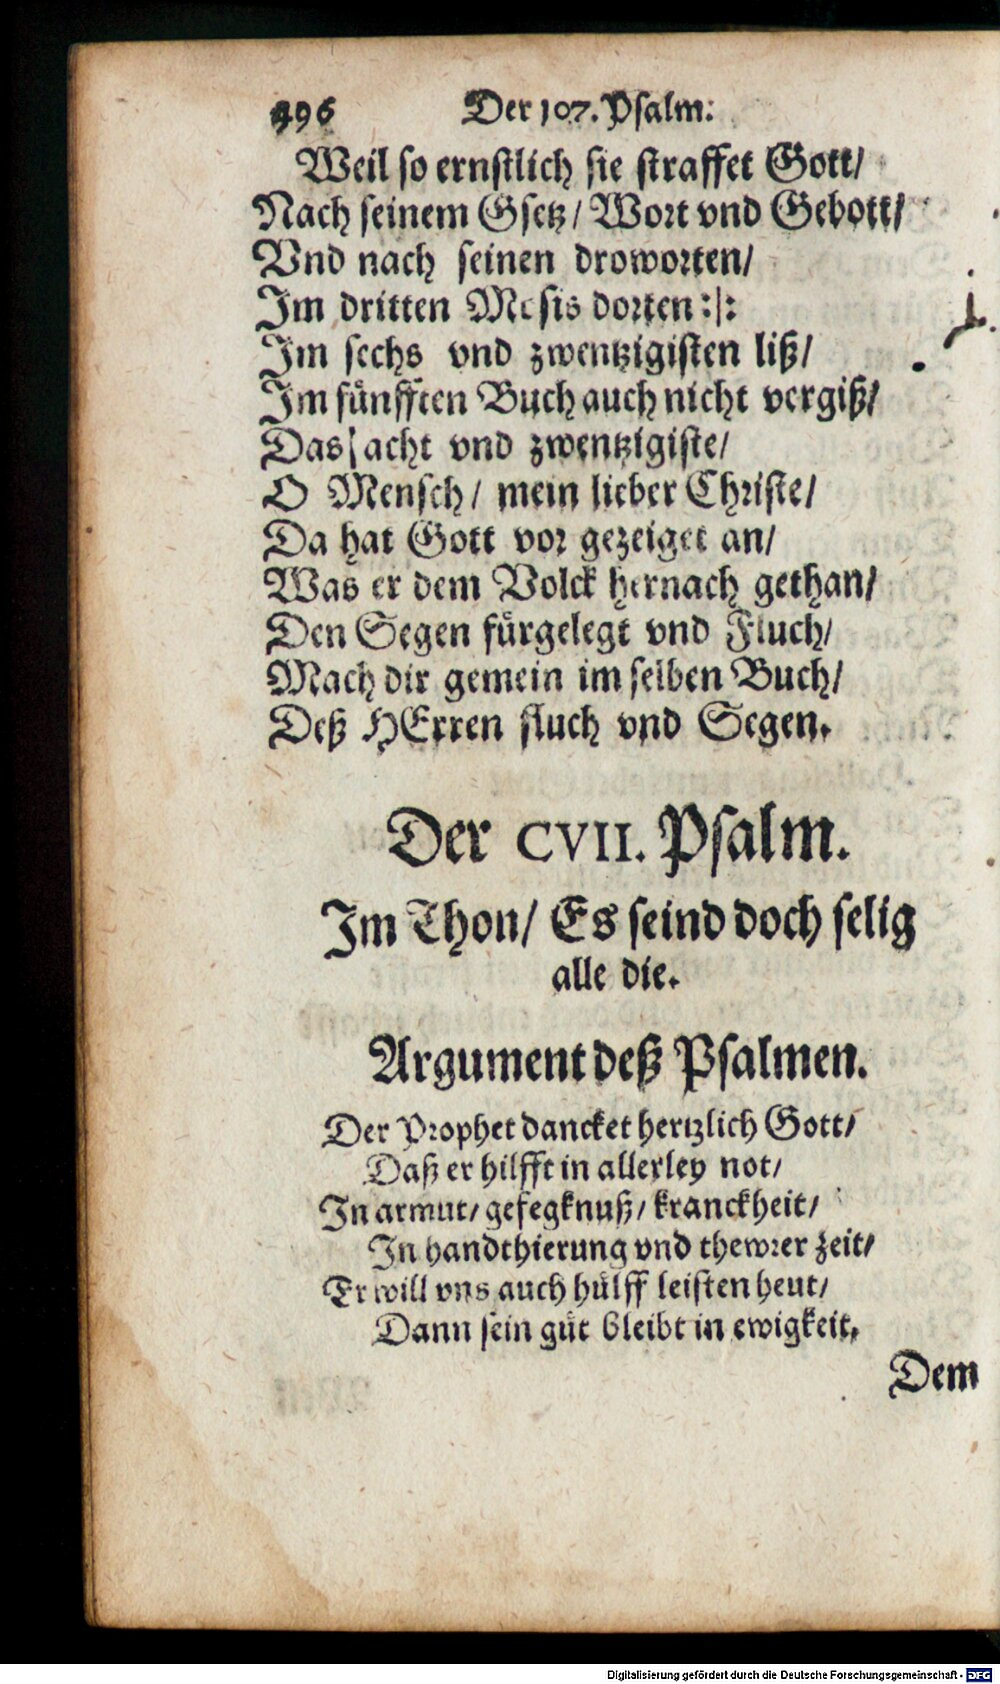 496 Der 107. Psalm:
Weil so ernstlich sie straffet Gott/
Nach seinem Gsetz/ Wort vnd Gebott/
Vnd nach seinen droworten/
Im dritten Mosis dorten :|:
Im sechs vnd zwentzigisten liß/
Im fünfften Buch auch nicht vergiß/
Das acht vnd zwentzigiste/
O Mensch/ mein lieber Christe/
Da hat Gott vor gezeiget an/
Was er dem Volck hernach gethan/
Den Segen fürgelegt vnd Fluch/
Mach dir gemein im selben Buch/
Deß HErren fluch vnd Segen.
Der CVII. Psalm.
Im Thon/ Es seind doch selig
alle die.
Argument deß Psalmen.
Der Prophet dancket hertzlich Gott/
Daß er hilfft in allerley not/
In armut/ gefegknuß/ kranckheit/
In handthierung vnd thewrer zeit/
Er will vns auch hülff leisten heut/
Dann sein güt bleibt in ewigkeit.
Dem
Digitalisierung gefördert durch die Deutsche Forschungsgemeinschaft - DFG